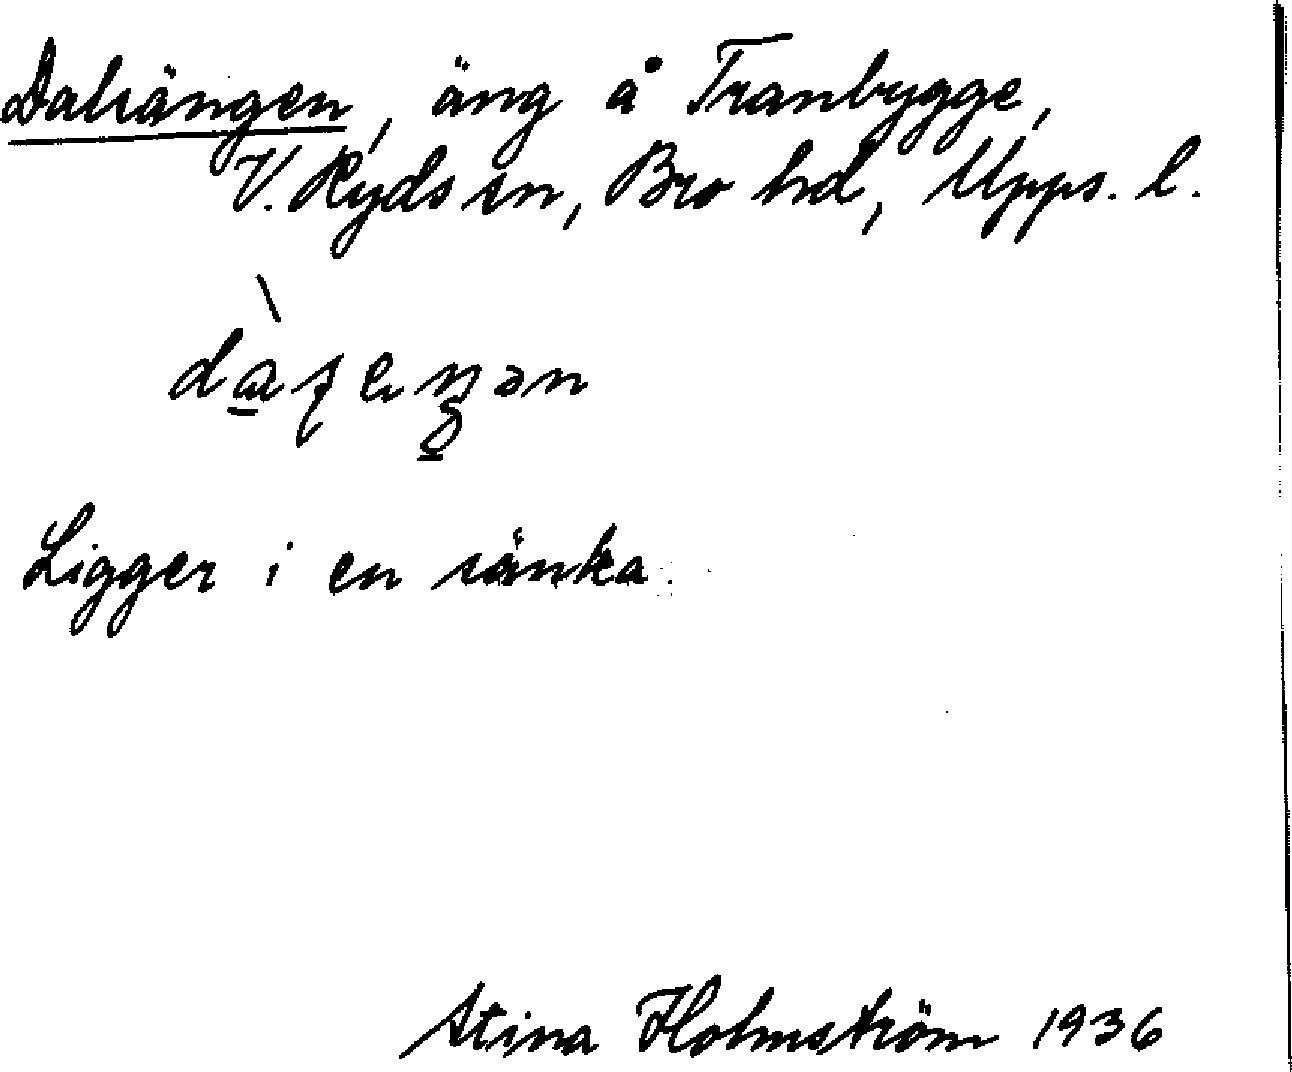 Dalsängen, äng å Tranbygge,
V. Ryds sn, Bro hd, Upps. l.
Ligger i en sänka.
Stina Holmström 1936